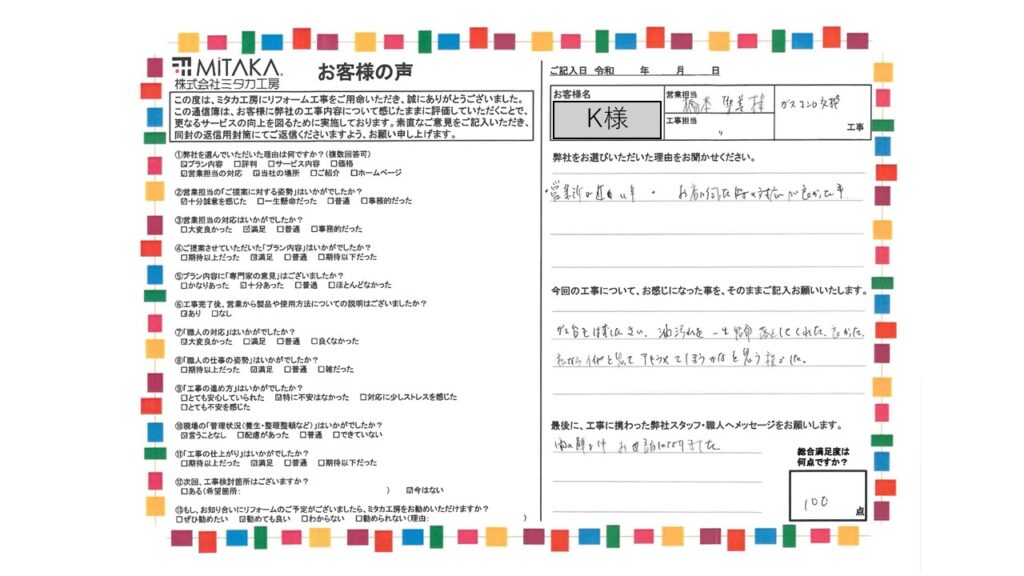 MiTAKA.
株式会社ミタカ工房
お客様の声
この度は、ミタカ工房にリフォーム工事をご用命いただき、誠にありがとうございました。
この通信簿は、お客様に弊社の工事内容について感じたままに評価していただくことで、
更なるサービスの向上を図るために実施しております。素直なご意見をご記入いただき、
同封の返信用封筒にてご返信くださいますよう、お願い申し上げます。
①弊社を選んでいただいた理由は何ですか？(複数回答可)
☑プラン内容 □評判 □サービス内容 □価格
☑営業担当の対応 ☑当社の場所 □ご紹介 □ホームページ
②営業担当の「ご提案に対する姿勢」はいかがでしたか？
☑十分誠意を感じた □一生懸命だった □普通 □事務的だった
③営業担当の対応はいかがでしたか？
□大変良かった ☑満足 □普通 □事務的だった
④ご提案させていただいた「プラン内容」はいかがでしたか？
□期待以上だった ☑満足 □普通 □期待以下だった
⑤プラン内容に「専門家の意見」はございましたか？
□かなりあった ☑十分あった □普通 □ほとんどなかった
⑥工事完了後、営業から製品や使用方法についての説明はございましたか？
☑あり □なし
⑦「職人の対応」はいかがでしたか？
☑大変良かった □満足 □普通 □良くなかった
⑧「職人の仕事の姿勢」はいかがでしたか？
□期待以上だった ☑満足 □普通 □雑だった
⑨「工事の進め方」はいかがでしたか？
□とても安心していられた ☑特に不安はなかった □対応に少しストレスを感じた
□とても不安を感じた
⑩現場の「管理状況(養生・整理整頓など)」はいかがでしたか？
☑言うことなし □配慮があった □普通 □できていない
⑪「工事の仕上がり」はいかがでしたか？
□期待以上だった ☑満足 □普通 □期待以下だった
⑫次回、工事検討箇所はございますか？
□ある(希望箇所: ) ☑今はない
⑬もし、お知り合いにリフォームのご予定がございましたら、ミタカ工房をお勧めいただけますか？
□ぜひ勧めたい ☑勧めても良い □わからない □勧められない(理由: )
ご記入日 令和 年 月 日
お客様名
K様
営業担当
工事担当
〃
ガスコンロ交換
工事
弊社をお選びいただいた理由をお聞かせください。
・営業所が近い事 ・ お店に伺った時の対応が良かった事
今回の工事について、お感じになった事を、そのままご記入お願いいたします。
油汚れを一生懸命落としてくれた。良かった。
最後に、工事に携わった弊社スタッフ・職人へメッセージをお願いします。
お世話になりました。
総合満足度は
何点ですか？
100
点